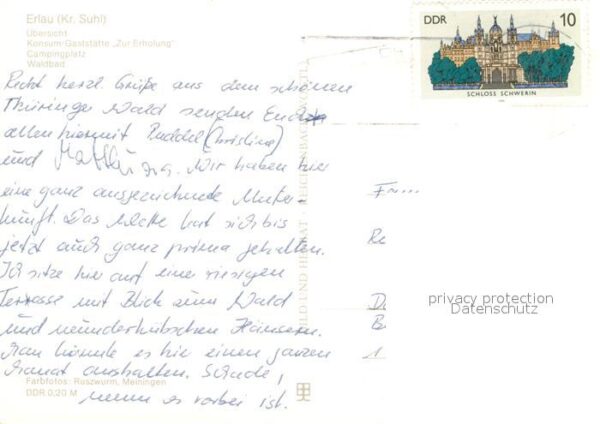 Erlau (Kr. Suhl)
Übersicht
Konsum-Gaststätte „Zur Erholung"
Campingplatz
Waldbad
DDR
10
SCHLOSS SCHWERIN
Recht herzl. Grüße aus dem schönen
Thüringer Wald senden Euch
allen hiermit Puddel (Christine)
und Wir haben hier
eine ganz ausgezeichnete Unter-
kunft. Das Wetter hat sich bis
jetzt auch ganz prima gehalten.
Ich sitze hier auf einer riesigen
Terrasse mit Blick zum Wald
und wunderhübschen Häusern.
Man könnte es hier einen ganzen
Monat aushalten. Schade,
wenn es vorbei ist.
BILD UND HEIMAT REICHENBACH
privacy protection
Datenschutz
Farbfotos: Ruszwurm, Meiningen
DDR 0,20 M